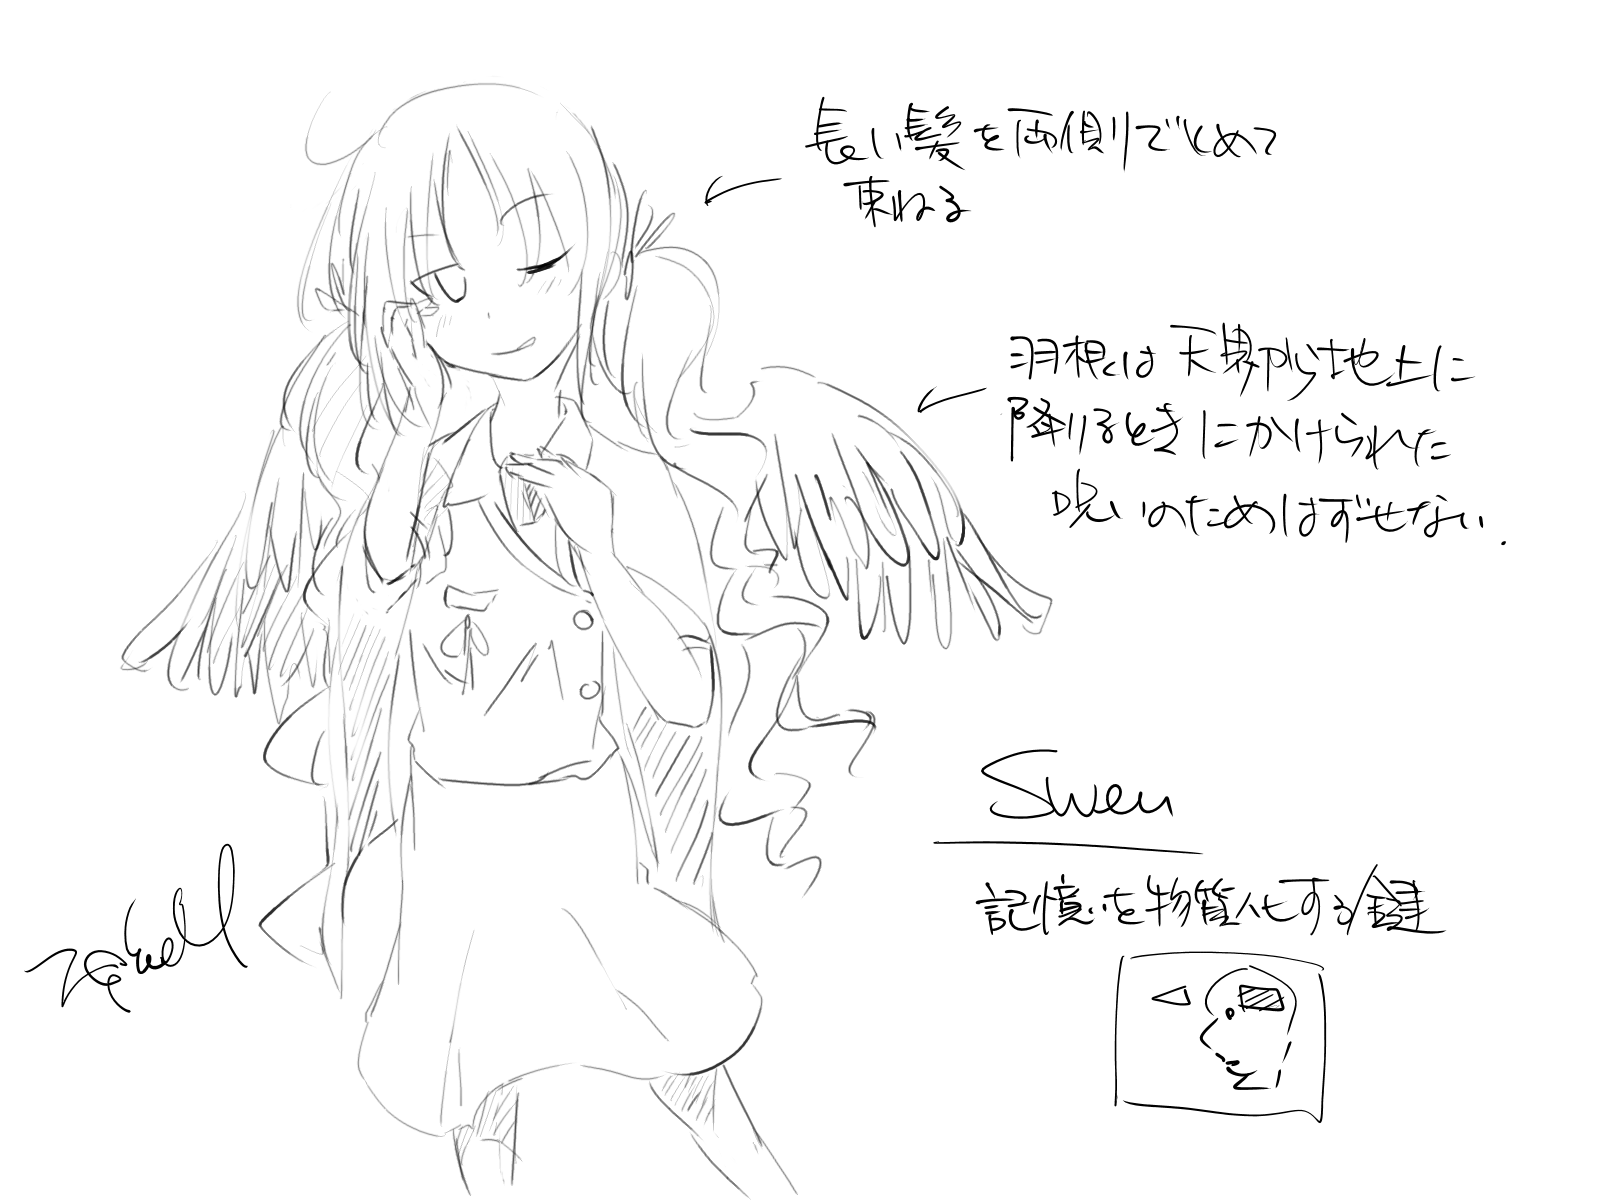 長い髪を両側でとめて
束ねる
羽根は天界から地上に
降りるときにかけられた
呪いのためはずせない.
Swen
記憶を物質化する鍵